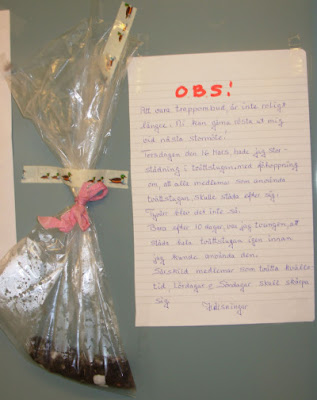 OBS!
Att vara trappombud, är inte roligt
längre. Ni kan gärna rösta ut mig
vid nästa stormöte!
Torsdagen den 16 hade jag stor-
städning i tvättstugan, med förhoppning
om, att alla medlemmar som använde
tvättstugan, skulle städa efter sig.
Tyvärr blev det inte så.
Bara efter 10 dagar, var jag tvungen, att
städa hela tvättstugan igen innan
jag kunde använda den.
Särskild medlemmar som tvätta kvälls-
tid, Lördagar & Söndagar skall skärpa
sig